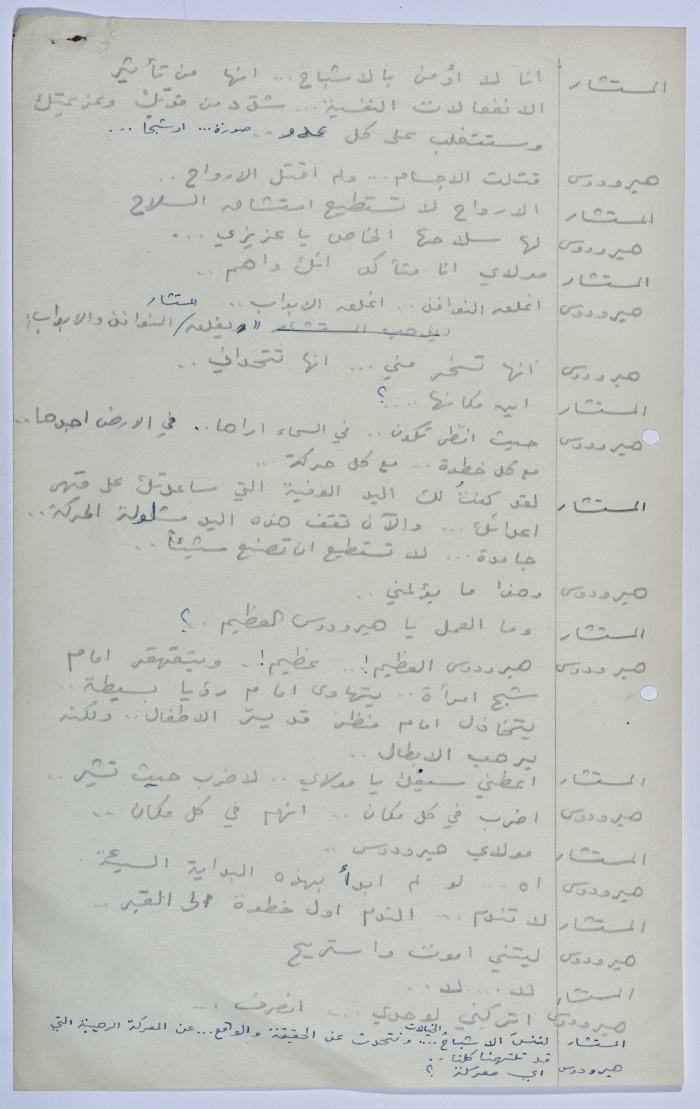 المستشار انا لا أؤمن بالاشباح ... انها من تأثير
الانفعالات النفسية ... شدّد من قوتك وعزيمتك
وستتغلب على كل عدو .. صورة ... او شبحاً ...
هيرودوس قتلت الاجسام ... ولم اقتل الارواح ..
المستشار الارواح لا تستطيع امتشاق السلاح
هيرودوس لها سلاحها الخاص يا عزيزي ...
المستشار مولاي انا متأكد انك واهم ..
هيرودوس اغلق النوافذ .. اغلق الابواب ..
المستشار يغلق / النوافذ والابواب
هيرودوس انها تسخر مني ... انها تتحداني ..
المستشار اين مكانها ....؟
هيرودوس حيث انظر تكون .. في السماء اراها .. في الارض اجدها ..
مع كل خطوة ... مع كل حركة ...
المستشار لقد كنتُ لك اليد الوفية التي ساعدتك على قهر
اعدائك ... والآن تقف هذه اليد مشلولة الحركة ..
جامدة ... لا تستطيع ان تصنع شيئاً ..
هيرودوس وهذا ما يؤلمني ..
المستشار وما العمل يا هيرودوس العظيم ..؟
هيرودوس هيرودوس العظيم! .. عظيم! .. ويتقهقر امام
شبح امرأة .. يتهاوى امام رؤيا بسيطة ..
يتخاذل امام منظر قد يسرّ الاطفال .. ولكنه
يرهب الابطال ..
المستشار اعطني سيفك يا مولاي .. لاضرب حيث تشير ..
هيرودوس اضرب في كل مكان .. انهم في كل مكان ..
المستشار مولاي هيرودوس ..
هيرودوس اه ... لو لم ابدأ بهذه البداية السيئة .
المستشار لا تندم ... الندم اول خطوة الى القبر ..
هيرودوس ليتني اموت واستريح
المستشار لا ... لا ..
هيرودوس اتركني لوحدي ... انصرف ...
المستشار لننسَ الاشباح والخيالات .... ونتحدث عن الحقيقة والواقع ... عن المعركة الرهيبة التي
قد تلتهمنا كلنا ..
هيرودوس اي معركة ؟